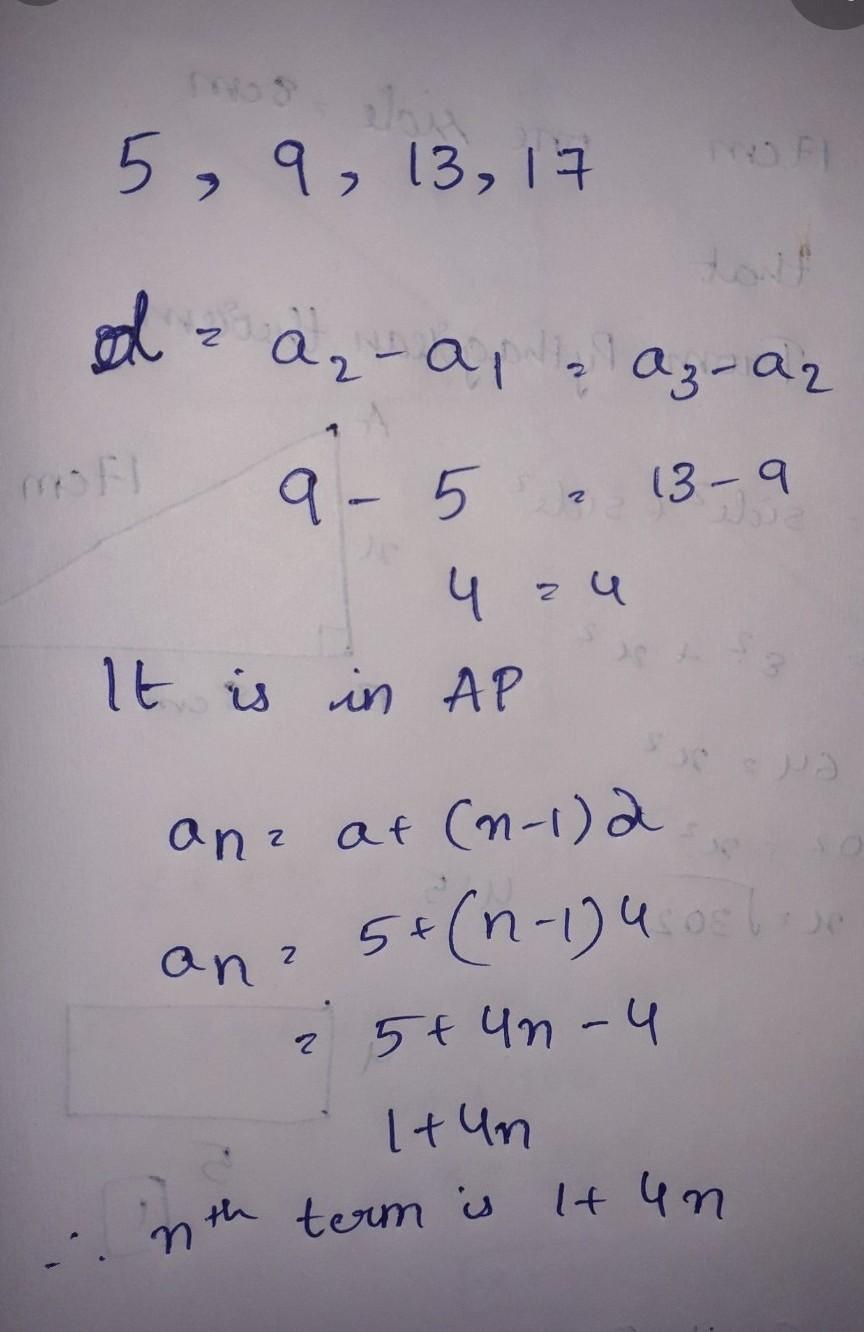 5, 9, 13, 17
d = a₂ - a₁ = a₃ - a₂
9 - 5 = 13 - 9
4 = 4
It is in AP
an = a + (n-1)d
an = 5 + (n-1)4
= 5 + 4n - 4
1 + 4n
∴ nth term is 1 + 4n